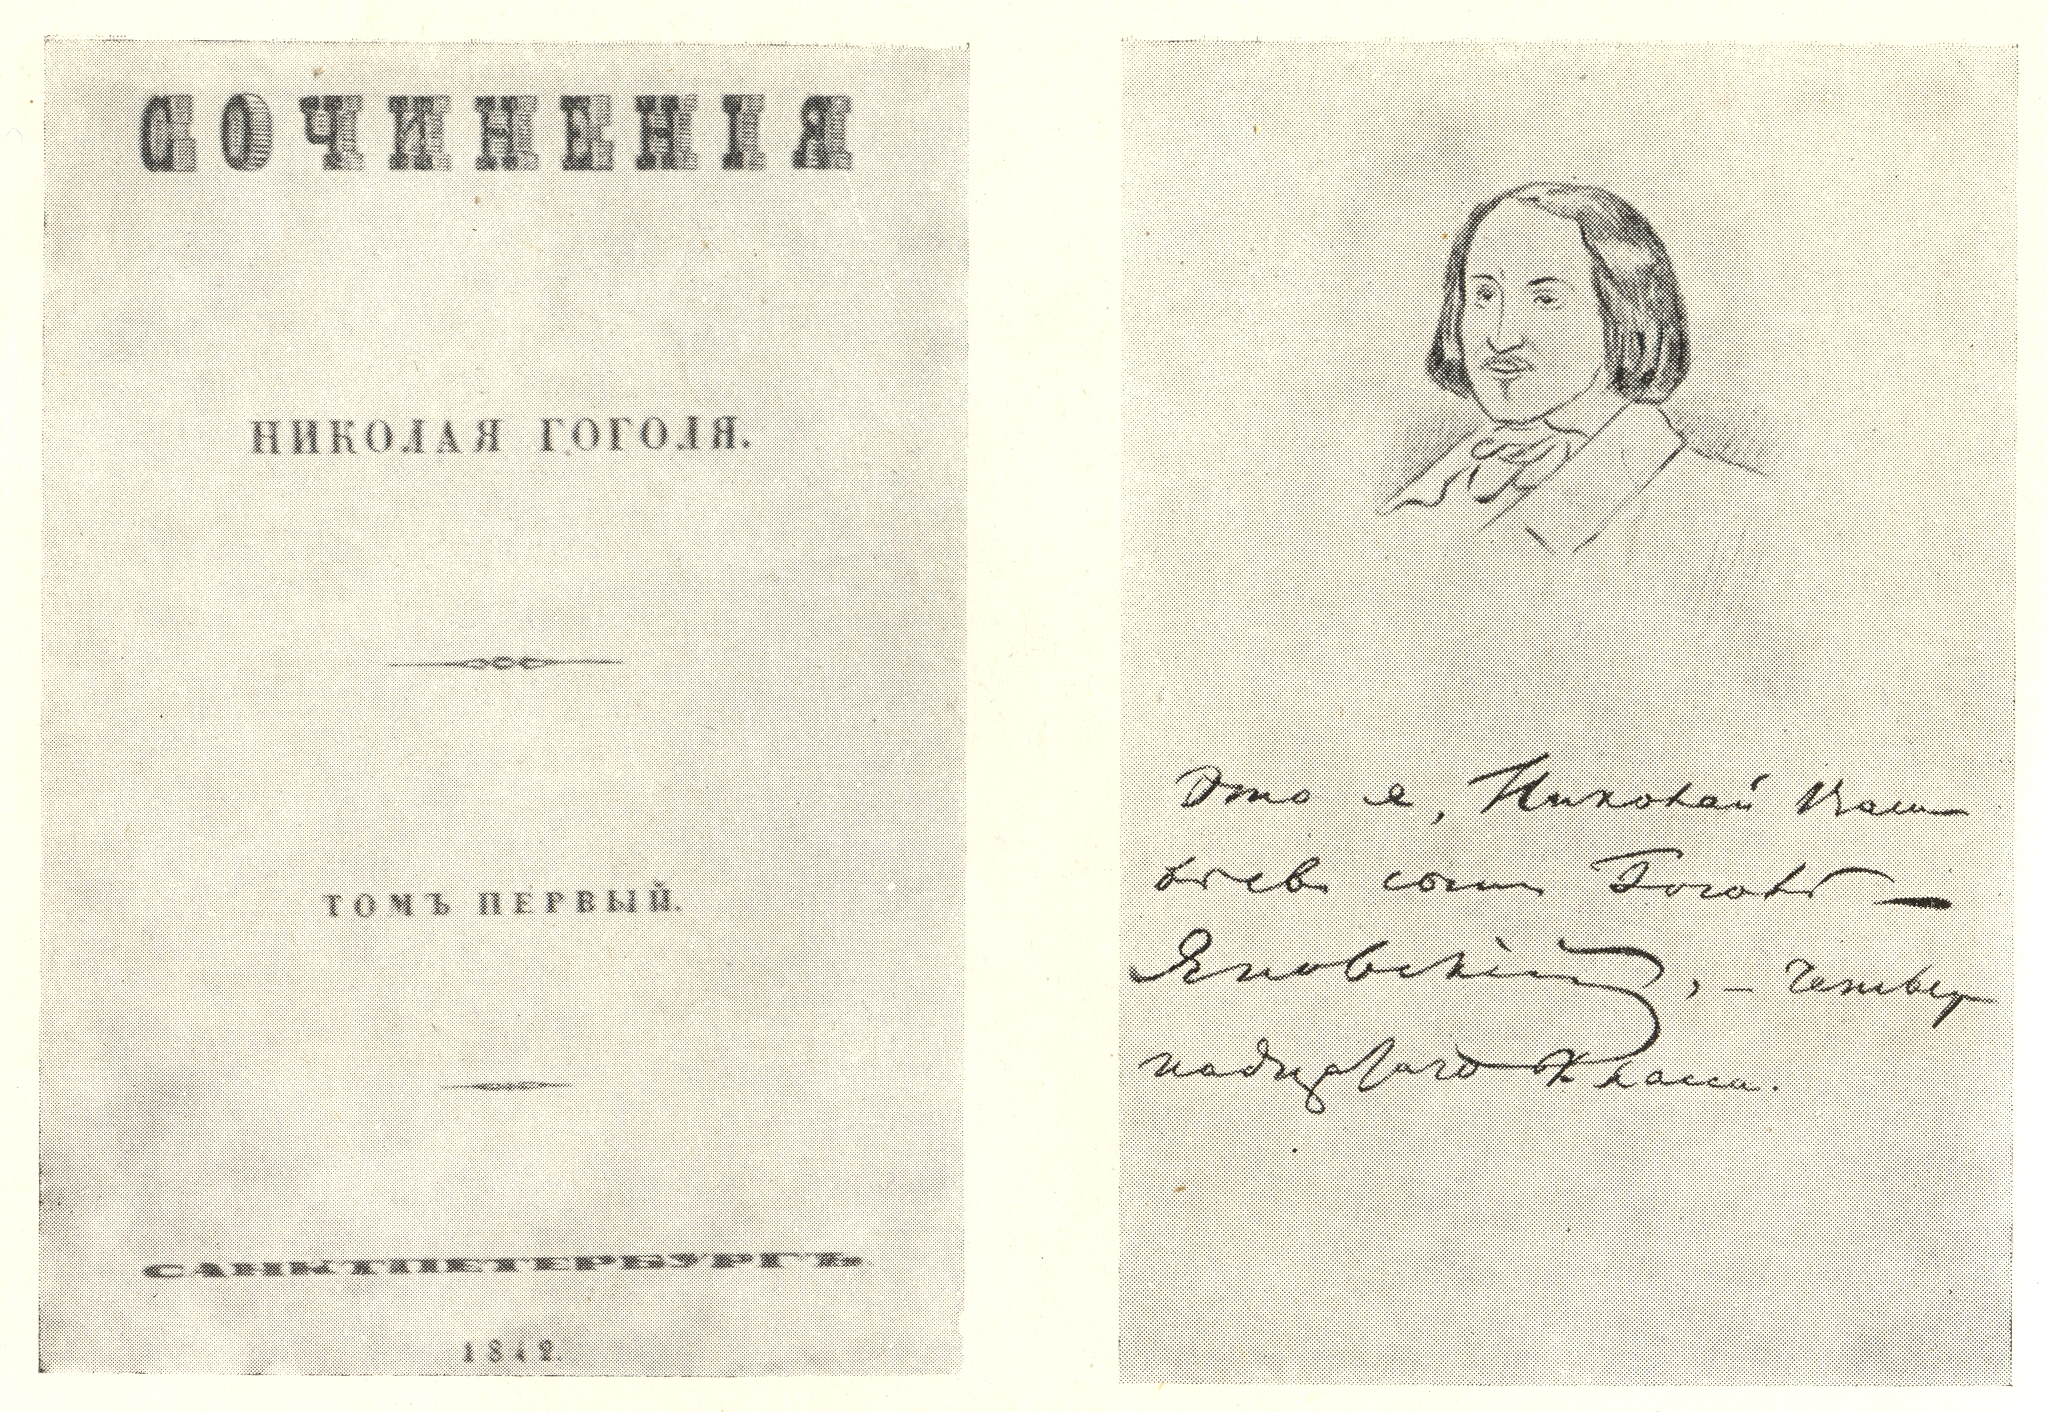 СОЧИНЕНІЯ
НИКОЛАЯ ГОГОЛЯ.
ТОМЪ ПЕРВЫЙ.
САНКТПЕТЕРБУРГЪ.
1842.
Это я, Николай
сын Гоголь —
Яновскій, — Четыр
надцатаго Класса.